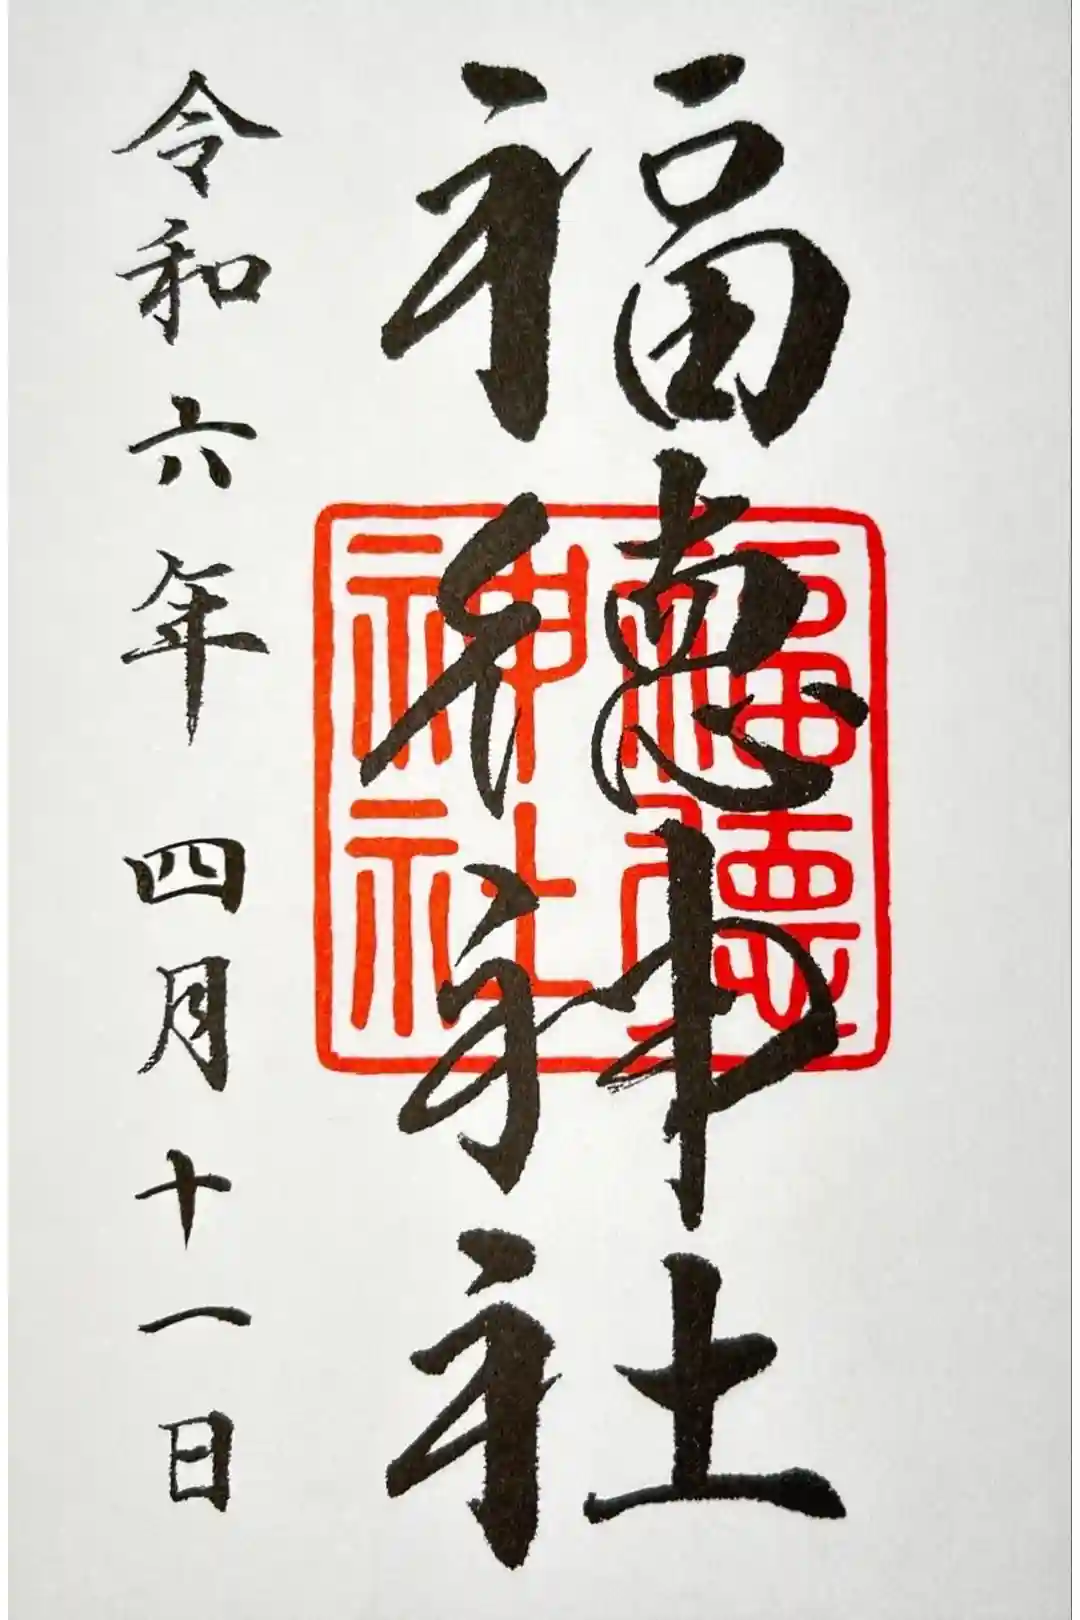 福徳神社
福徳
神社
令和六年 四月十一日